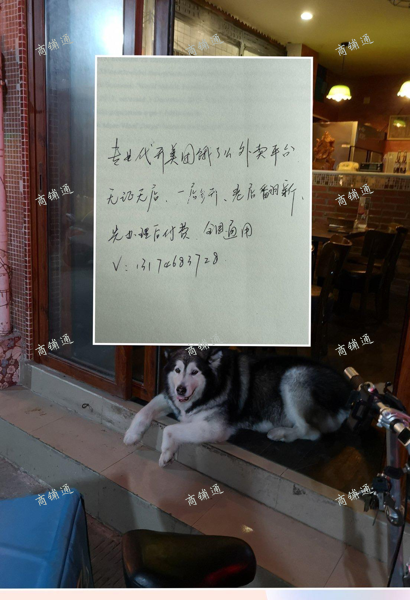 专业代开美团饿了么外卖平台
无证无店、一店多开、老店翻新、
先办理后付费 全国通用
V: 13174683728
商铺通
商铺通
商铺通
商铺通
商铺通
商铺通
商铺通
商铺通
商铺通
商铺通
商铺通
商铺通